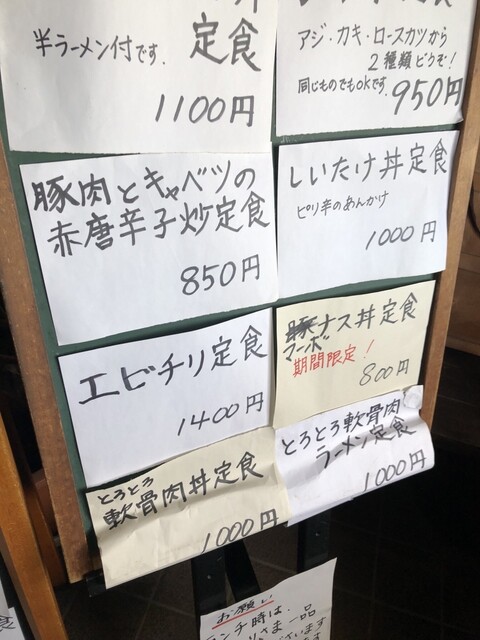 定食
半ラーメン付です.
1100円
アジ・カキ・ロースカツから
2種類ビクぞ!
同じものでもokです.
950円
豚肉とキャベツの
赤唐辛子炒定食
850円
しいたけ丼定食
ピリ辛のあんかけ
1000円
エビチリ定食
1400円
ナス丼定食
マーボ
期間限定!
800円
とろとろ
軟骨肉丼定食
1000円
とろとろ軟骨肉
ラーメン定食
1000円
お願い
ンチ時は.
さま一品